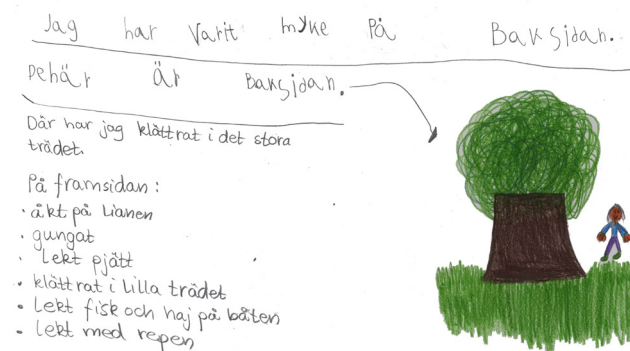 Jag har varit myke på Baksidan.
Dehär är Baksidan.
Där har jag klättrat i det stora
trädet.
På framsidan:
• åkt på Lianen
• gungat
• Lekt pjätt
• klättrat i Lilla trädet
• Lekt fisk och haj på båten
• Lekt med repen